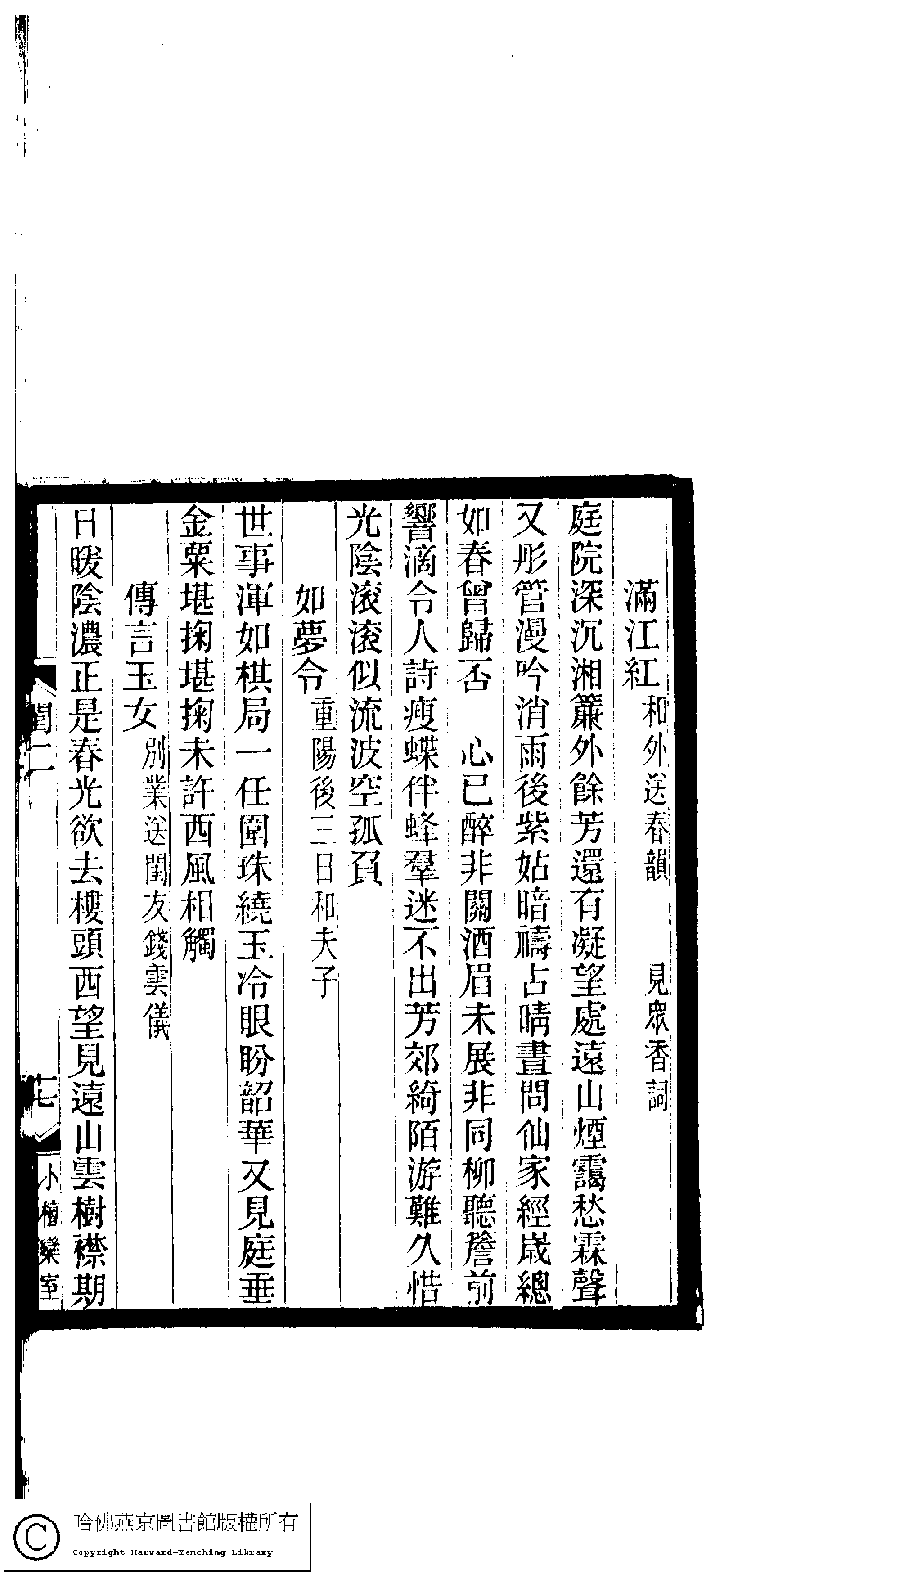 滿江紅 和外送春韻　見眾香詞
庭院深沉湘簾外餘芳還有凝望處遠山煙靄愁霖聲
又彤管漫吟消雨後紫姑暗禱占晴晝問仙家經歲總
如春曾歸否　心已醉非關酒眉未展非同柳聽簷前
響滴令人詩瘦蝶伴蜂羣迷不出芳郊綺陌游難久惜
光陰滚滚似流波空孤負
如夢令 重陽後三日和夫子
世事渾如棋局一任圍珠繞玉冷眼盼韶華又見庭垂
金粟堪掬堪掬未許西風相觸
傳言玉女 別業送閨友錢雲儀
日暖陰濃正是春光欲去樓頭西望見遠山雲樹襟期
閨二
七
小檀欒室
哈佛燕京圖書館版權所有
Copyright Harvard-Yenching Library